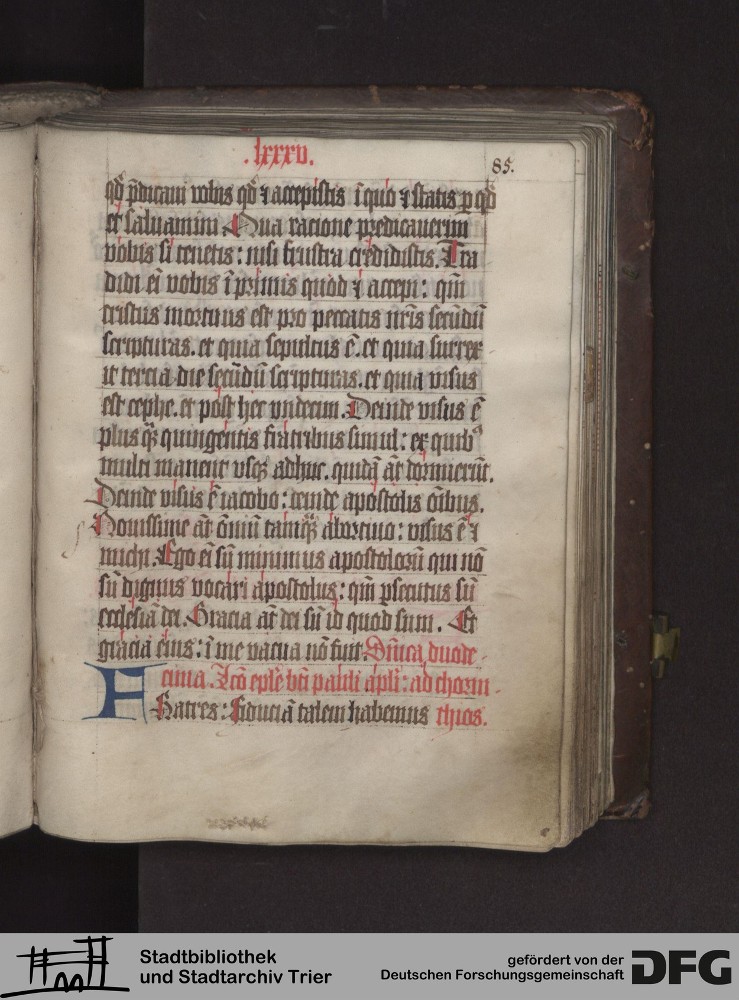 .lxxxv.
85.
qd̄ p̄dicaui vobis qd̄ ⁊ accepistis ī quo ⁊ statis p qd̄
et saluamini Qua racione predicauerim
vobis si tenetis: nisi frustra credidistis. Tra
didi eī vobis ī primis quod ⁊ accepi: qm̄
cristus mortuus est pro peccatis nr̄is secūdū
scripturas. et quia sepultus ē. et quia surrex
it tercia die secūdū scripturas. et quia visus
est cephe. et post hec vndecim. Deinde visus ē
plus qȝ quingentis fratribus simul: ex quibꝰ
multi manent vsqȝ adhuc. quidā at̄ dormierūt.
Deinde visus ē iacobo: deinde apostolis oībus.
Nouissime at̄ ōniū tamqȝ abortiuo: visus ē ⁊
michi. Ego eī sū minimus apostolorū qui nō
sū dignus vocari apostolus: qm̄ psecutus sū
ecclesiā dei. Gracia at̄ dei sū id quod sum. Et
gracia eius: ī me vacua nō fuit. Dn̄ica duode-
cima. Lcō eplē bti pauli apli: ad chorin-
Fratres: fiduciā talem habemus thios.
Stadtbibliothek
und Stadtarchiv Trier
gefördert von der
Deutschen Forschungsgemeinschaft
DFG